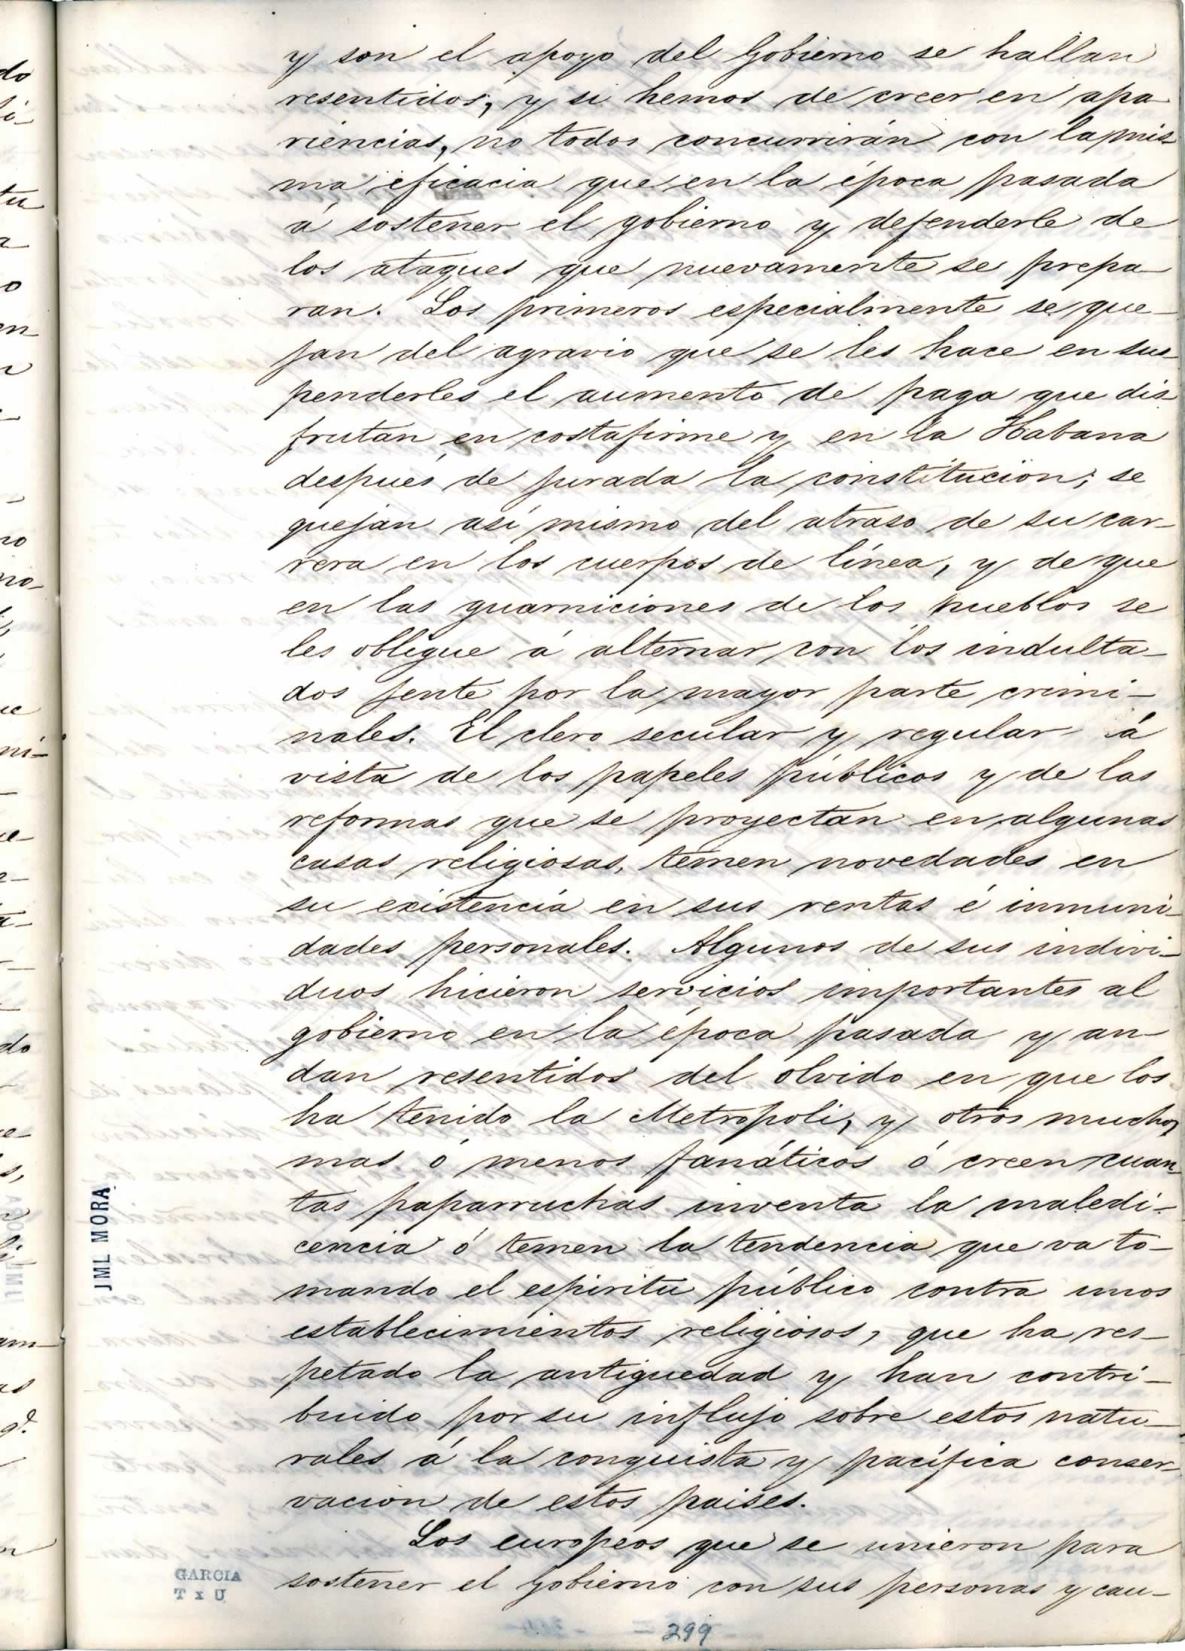 y son el apoyo del Gobierno se hallan
resentidos, y si hemos de creer en apa
riencias, no todos concurrirán con la mis
ma eficacia que en la época pasada
á sostener el gobierno y defenderle de
los ataques que nuevamente se prepa-
ran. Los primeros especialmente se que-
jan del agravio que se les hace en sus-
penderles el aumento de paga que dis
frutan en costafirme y en la Habana
después de jurada la constitucion; se
quejan así mismo del atraso de su car-
rera en los cuerpos de línea, y de que
en las guarniciones de los pueblos se
les obligue á alternar con los indulta-
dos jente por la mayor parte crimi-
nales. El clero secular y regular á
vista de los papeles públicos y de las
reformas que se proyectan en algunas
casas religiosas, temen novedades en
su existencia en sus rentas é inmuni-
dades personales. Algunos de sus indivi-
duos hicieron servicios importantes al
gobierno en la época pasada y an-
dan resentidos del olvido en que los
ha tenido la Metropoli, y otros muchos
mas ó menos fanáticos ó creen cuan
tas paparruchas inventa la maledi-
cencia ó temen la tendencia que va to-
mando el espiritu público contra unos
establecimientos religiosos, que ha res-
petado la antiguedad y han contri-
buido por su influjo sobre estos natu-
rales á la conquista y pacífica conser-
vacion de estos paises.
Los europeos que se unieron para
sostener el gobierno con sus personas y cau-
JML MORA
GARCIA
T x U
- 299 -